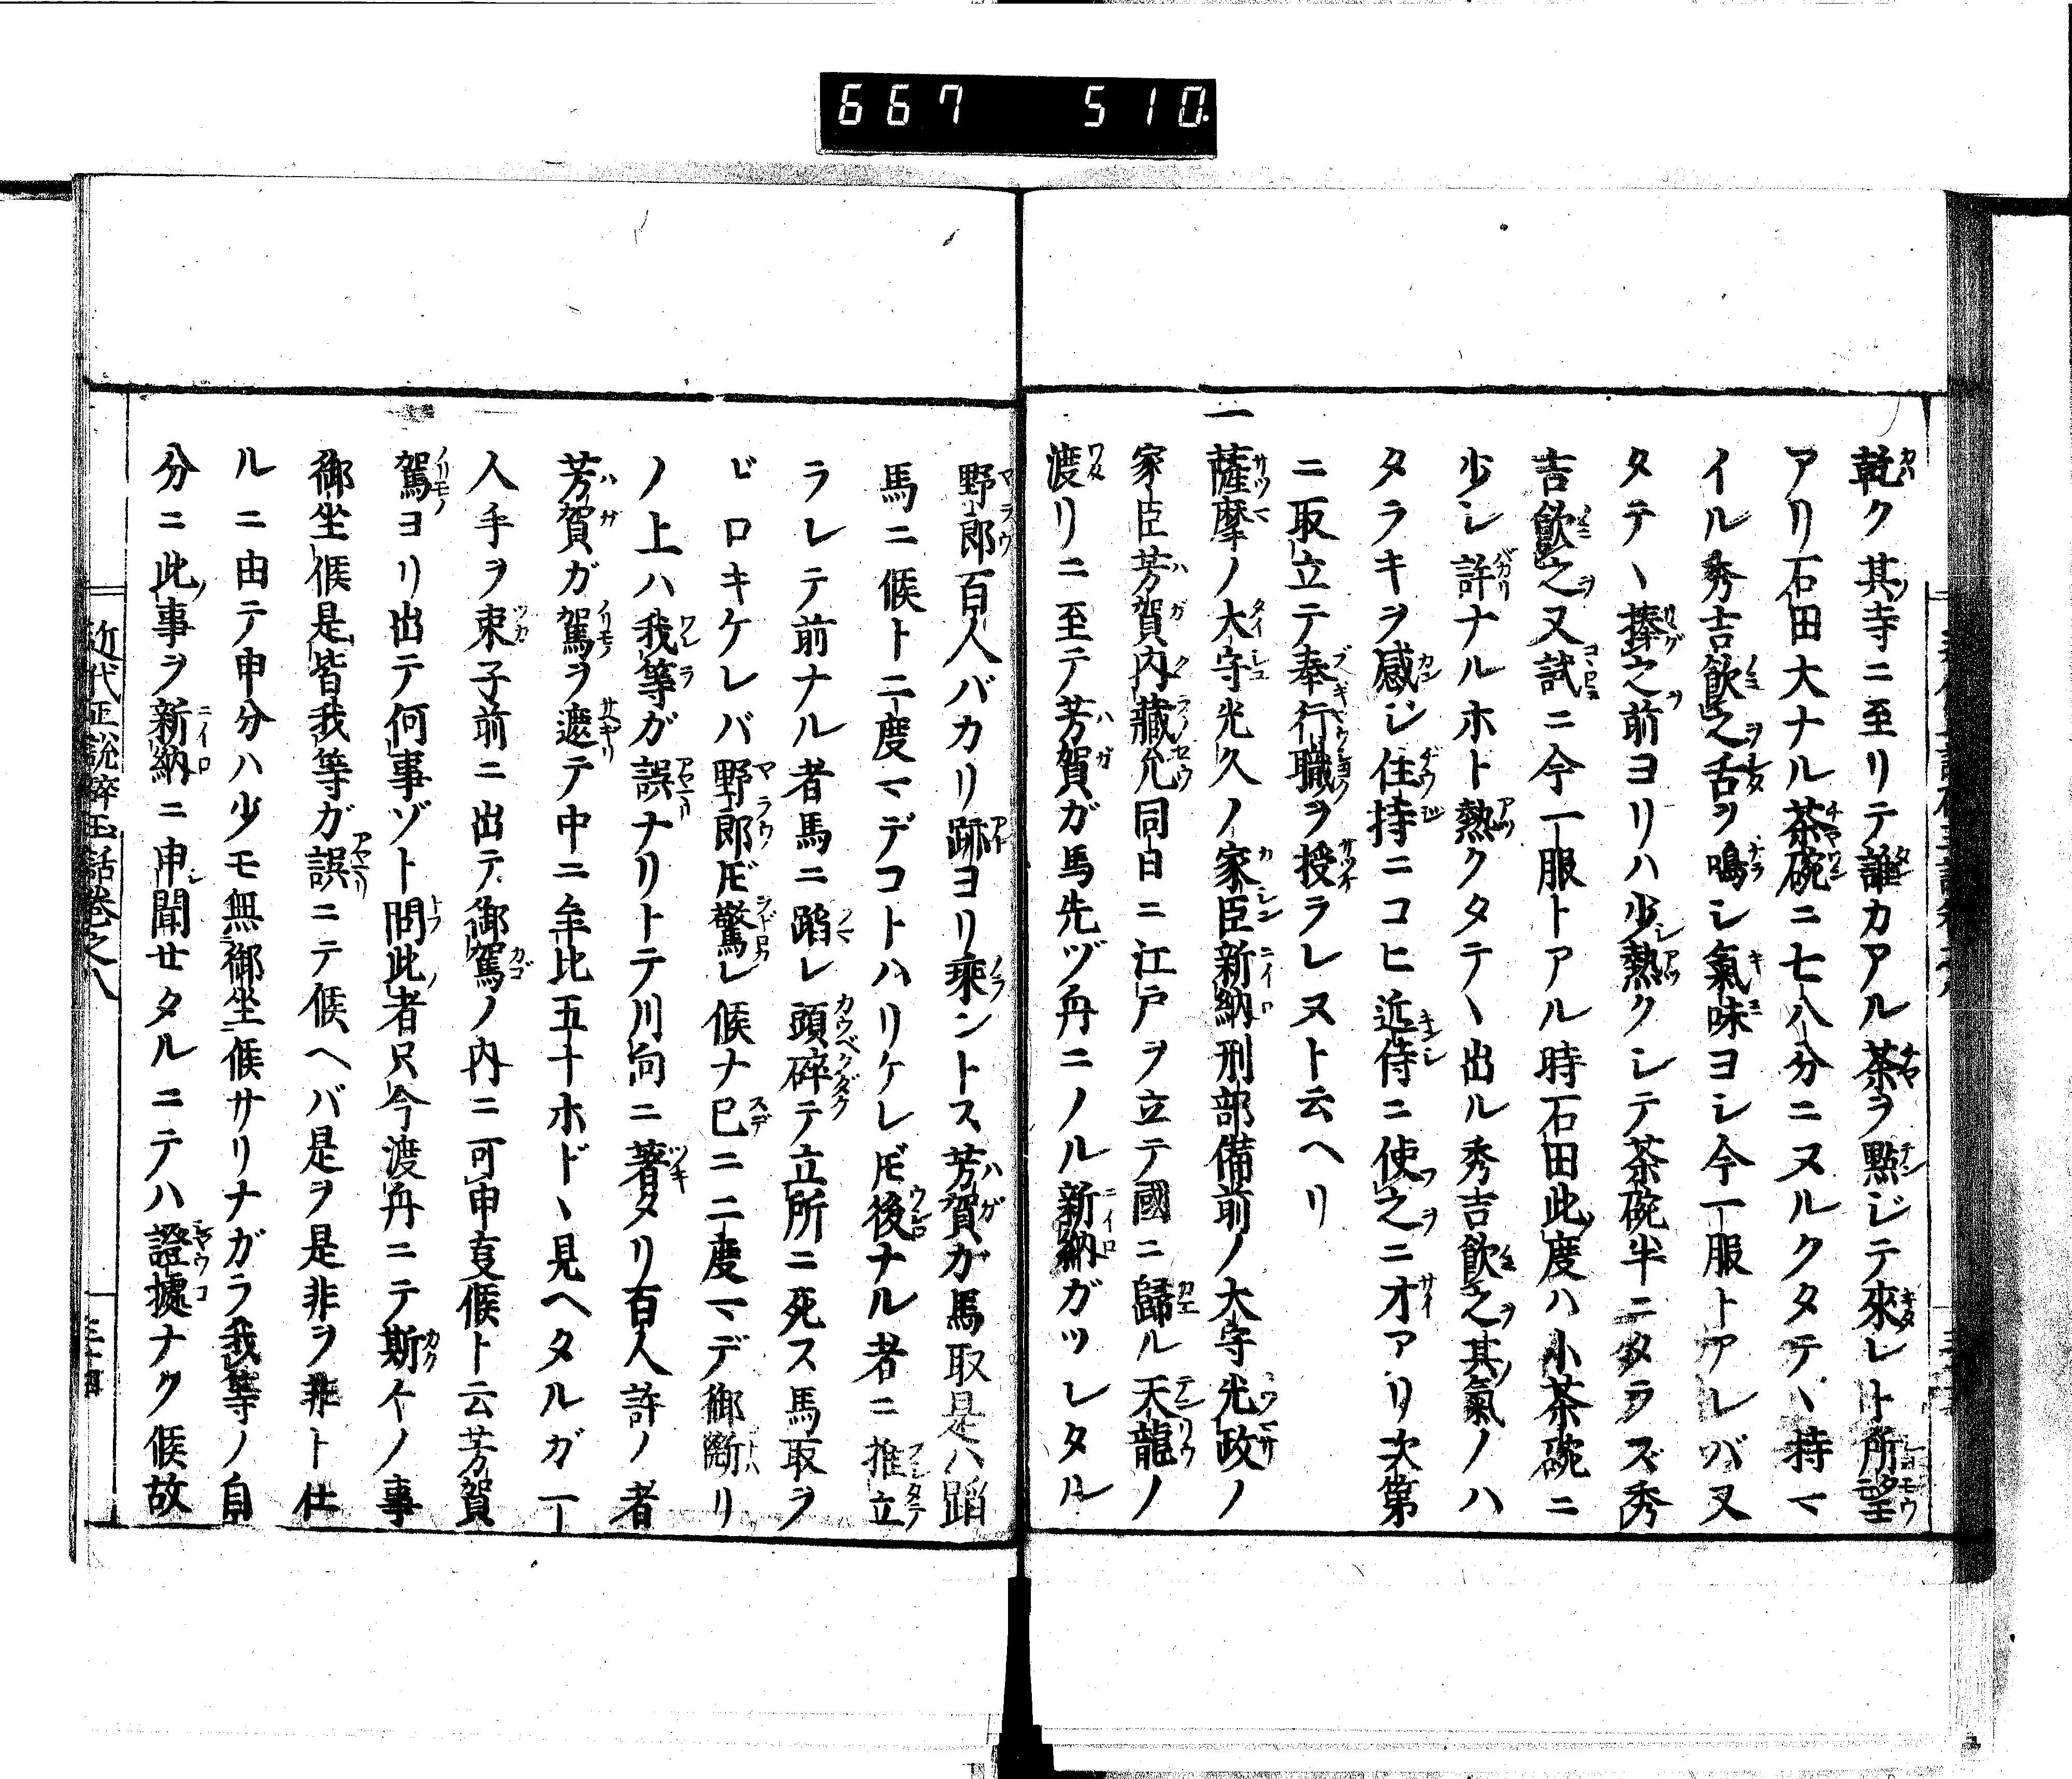 667 510.
乾ク其寺ニ至リテ誰カアル茶ヲ點ジテ來レト所望
アリ石田大ナル茶碗ニ七八分ニヌルクタテヽ持マ
イル秀吉飲之舌ヲ鳴シ氣味ヨシ今一服トアレバ又
タテヽ捧之前ヨリハ少熱クシテ茶碗半ニタラズ秀
吉飲之又試ニ今一服トアル時石田此度ハ小茶碗ニ
少シ許ナルホト熱クタテヽ出ル秀吉飲之其氣ノハ
タラキヲ感ジ住持ニコヒ近侍ニ使之ニオアリ次第
ニ取立テ奉行職ヲ授ラレヌト云ヘリ
一薩摩ノ大守光久ノ家臣新納刑部備前ノ大守光政ノ
家臣芳賀内藏允同日ニ江戸ヲ立テ國ニ歸ル天龍ノ
渡リニ至テ芳賀ガ馬先ヅ舟ニノル新納ガツレタル
野郎百人バカリ跡ヨリ乘ントス芳賀ガ馬取是ハ蹈
馬ニ候ト二度マデコトハリケレ𪜈後ナル者ニ推立
ラレテ前ナル者馬ニ蹈レ頭碎テ立所ニ死ス馬取ヲ
ドロキケレバ野郎𪜈驚レ候ナ已ニ二度マデ御斷リ
ノ上ハ我等ガ誤ナリトテ川向ニ著タリ百人許ノ者
芳賀ガ駕ヲ遮テ中ニ年比五十ホドヽ見ヘタルガ一
人手ヲ束子前ニ出テ御駕ノ内ニ可申叓候ト云芳賀
駕ヨリ出テ何事ゾト問此者只今渡舟ニテ斯々ノ事
御坐候是皆我等ガ誤ニテ候ヘバ是ヲ是非ヲ非ト仕
ルニ由テ申分ハ少モ無御坐候サリナガラ我等ノ自
分ニ此事ヲ新納ニ申聞セタルニテハ證據ナク候故
近代正説碎玉話卷之八